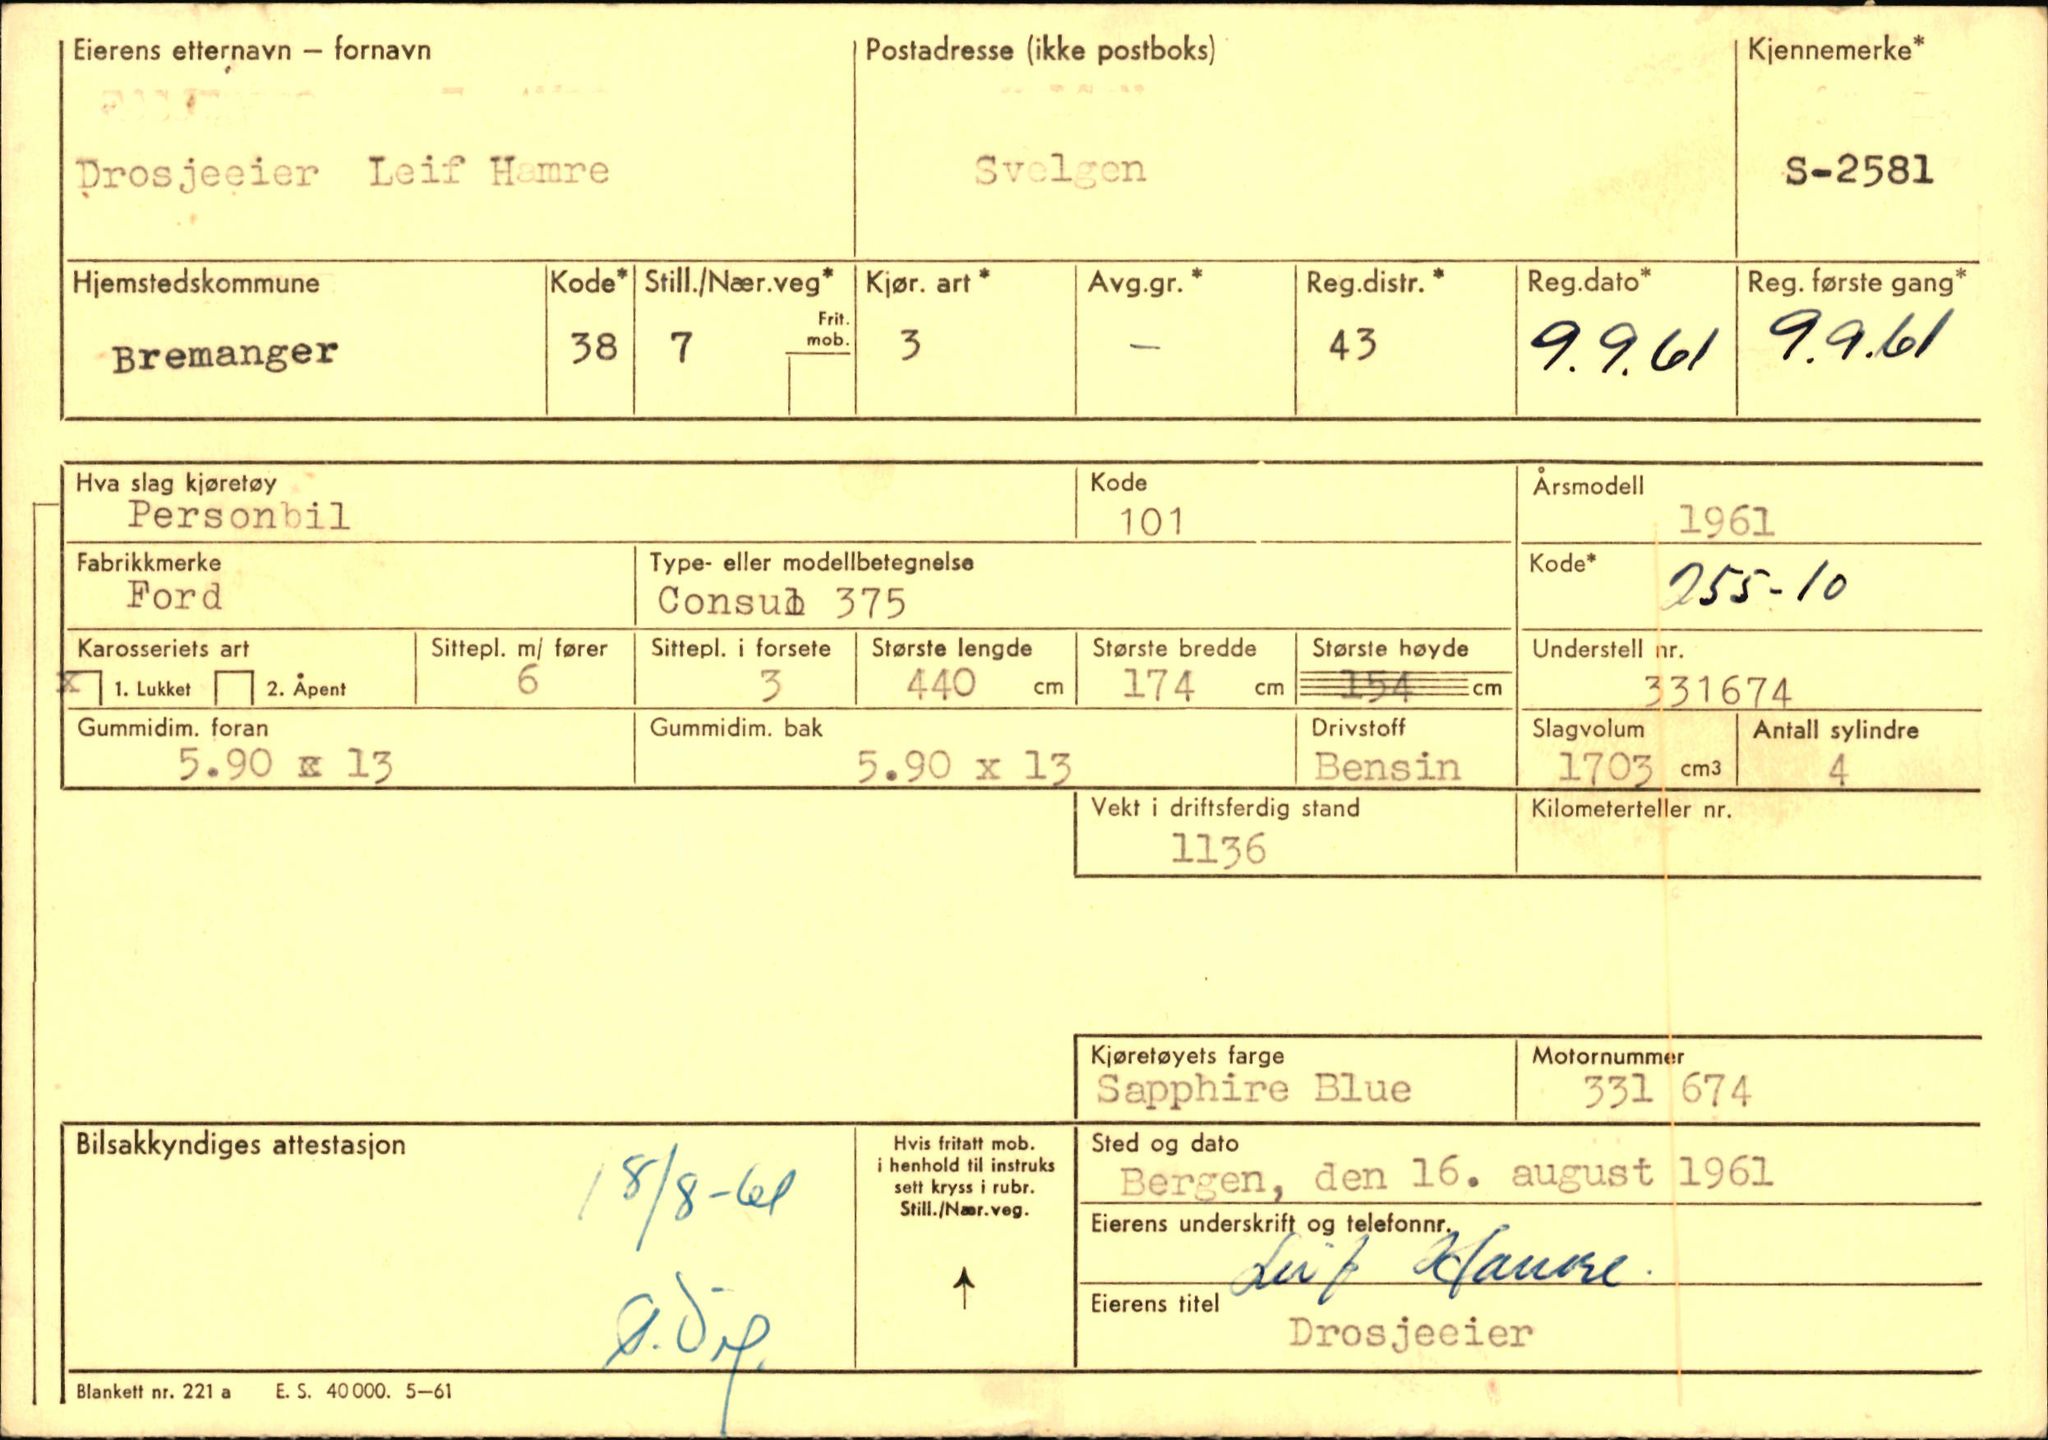 Eierens etternavn – fornavn
Postadresse (ikke postboks)
Kjennemerke*
Drosjeeier Leif Hamre
Svelgen
S-2581
Hjemstedskommune
Kode*
Still./Nær.veg*
Kjør. art*
Avg.gr.*
Reg.distr.*
Reg.dato*
Reg. første gang*
Frit.
mob.
Bremanger
38
7
3
–
43
9.9.61
9.9.61
Hva slag kjøretøy
Kode
Årsmodell
Personbil
101
1961
Fabrikkmerke
Type- eller modellbetegnelse
Kode*
Ford
Consul 375
255-10
Karosseriets art
Sittepl. m/ fører
Sittepl. i forsete
Største lengde
Største bredde
Største høyde
Understell nr.
x 1. Lukket 2. Åpent
6
3
440 cm
174 cm
154 cm
331674
Gummidim. foran
Gummidim. bak
Drivstoff
Slagvolum
Antall sylindre
5.90 x 13
5.90 x 13
Bensin
1703 cm3
4
Vekt i driftsferdig stand
Kilometerteller nr.
1136
Kjøretøyets farge
Motornummer
Sapphire Blue
331 674
Bilsakkyndiges attestasjon
18/8-61
Hvis fritatt mob.
i henhold til instruks
sett kryss i rubr.
Still./Nær.veg.
Sted og dato
Bergen, den 16. august 1961
Eierens underskrift og telefonnr.
Leif Hamre.
Eierens titel
Drosjeeier
Blankett nr. 221 a E. S. 40 000. 5–61